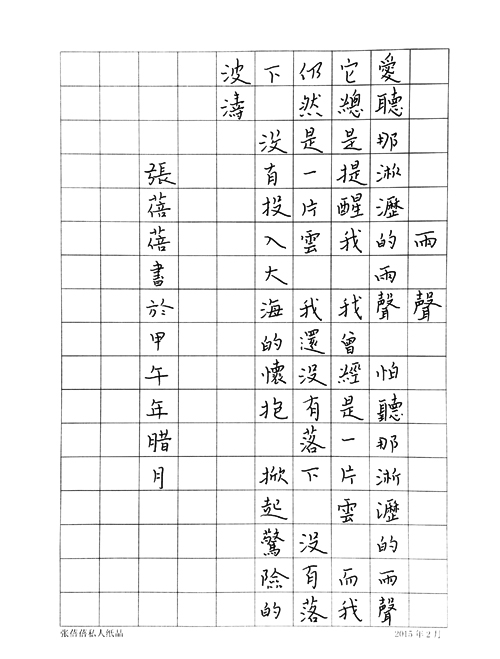 雨聲
愛聽那淅瀝的雨聲 怕聽那淅瀝的雨聲
它總是提醒我 我曾經是一片雲 而我
仍然是一片雲 我還没有落下 没有落
下 没有投入大海的懷抱 掀起驚險的
波濤
張蓓蓓書於甲午年腊月
张蓓蓓私人纸品
2015年2月